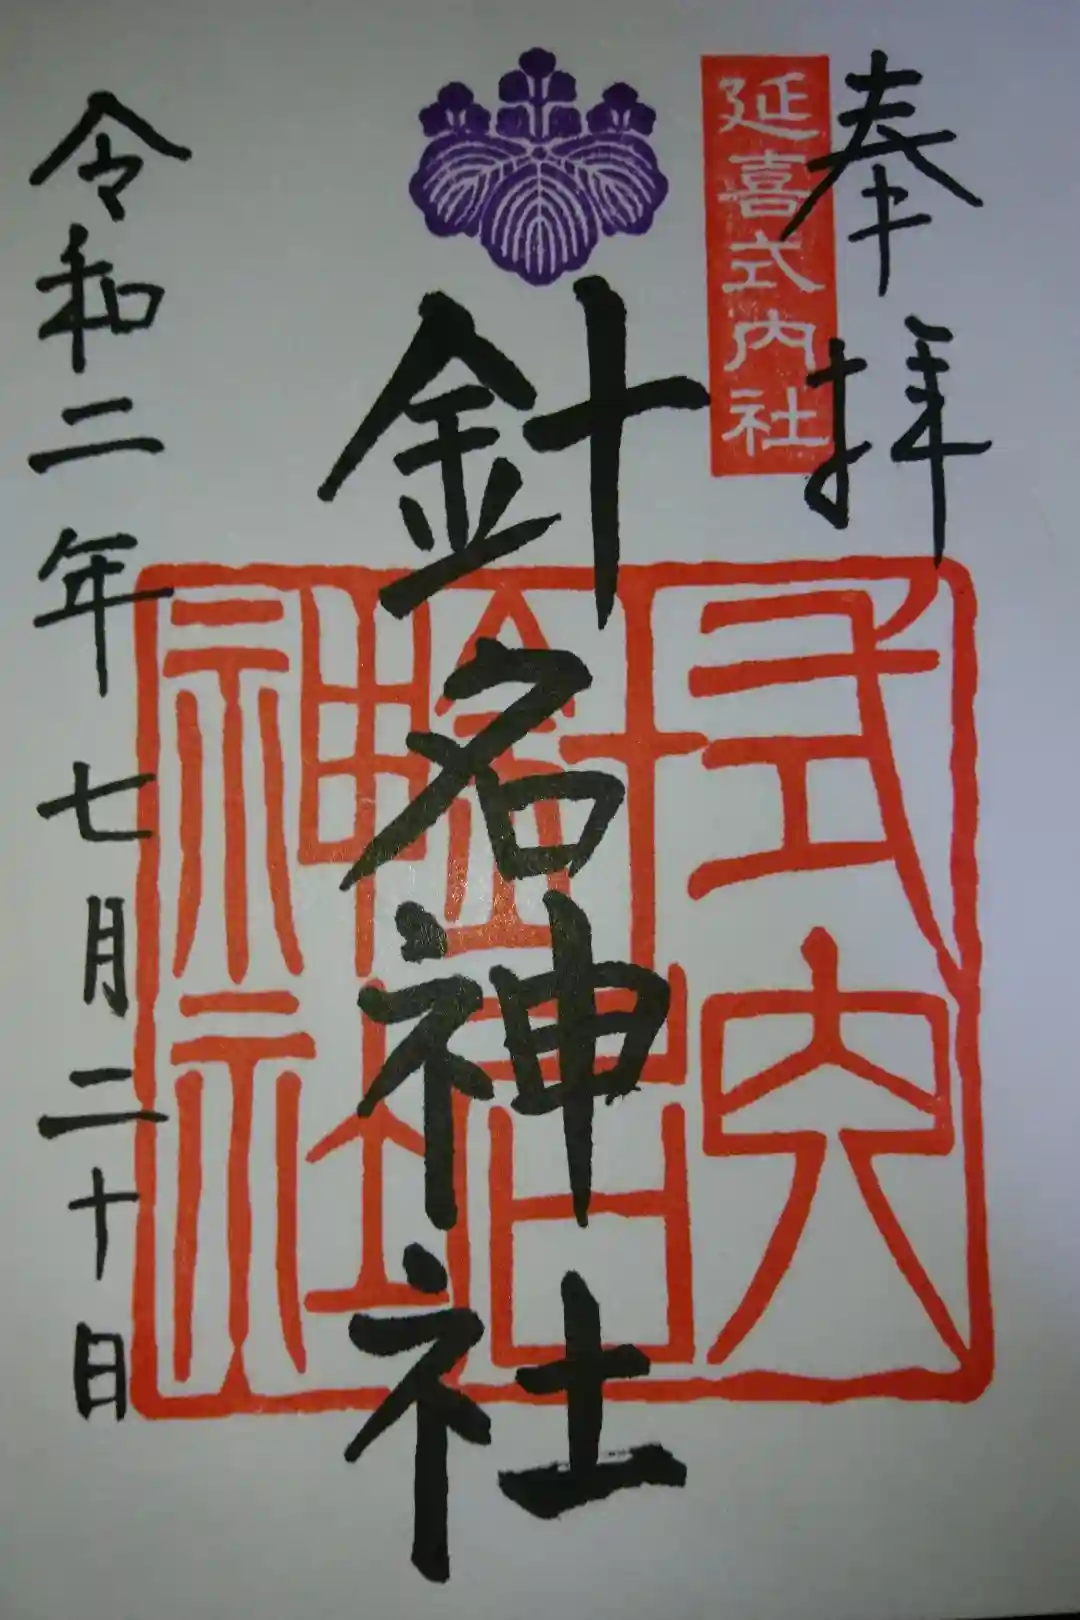 奉拝
延喜式内社
式内
針名
神社
針名神社
令和二年七月二十日